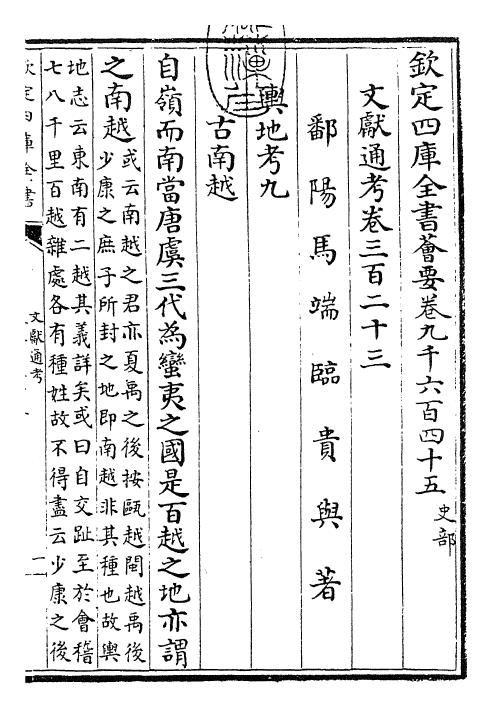 欽定四庫全書薈要卷九千六百四十五 史部
文獻通考卷三百二十三
鄱陽馬端臨貴與著
輿地考九
古南越
自嶺而南當唐虞三代為蠻夷之國是百越之地亦謂
之南越 或云南越之君亦夏禹之後按甌越閩越禹後
少康之庶子所封之地即南越非其種也故輿
地志云東南有二越其義詳矣或曰自交趾至於會稽
七八千里百越雜處各有種姓故不得盡云少康之後
欽定四庫全書
文獻通考
一